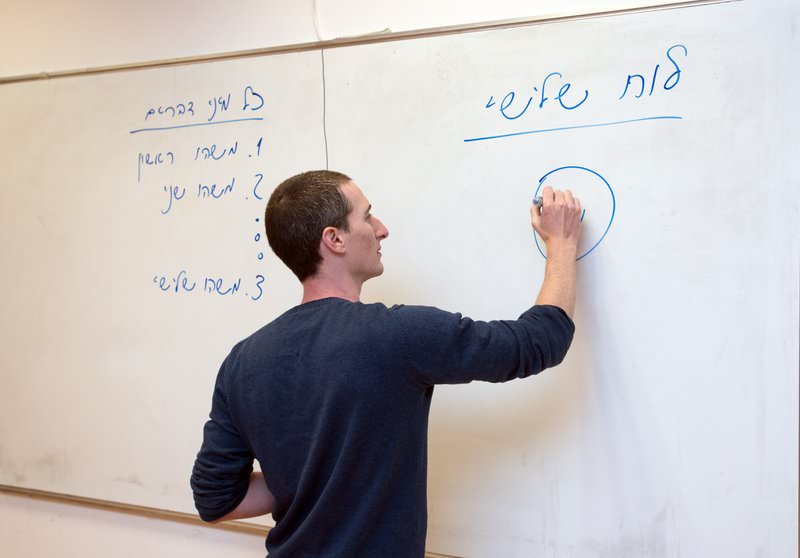 לוח שלישי
כל מיני דברים
1. משהו ראשון
2. משהו שני
3. משהו שלישי